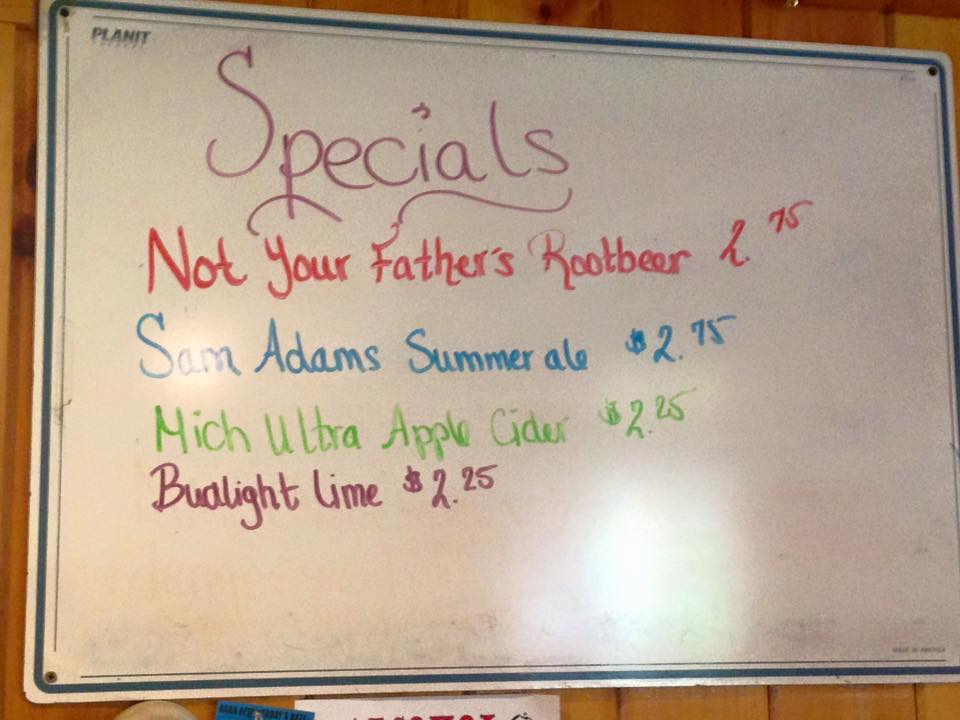 PLANIT
Specials
Not Your Father's Rootbeer 2.75
Sam Adams Summer ale $2.75
Mich Ultra Apple Cider $2.25
Budlight Lime $2.25
MADE IN AMERICA